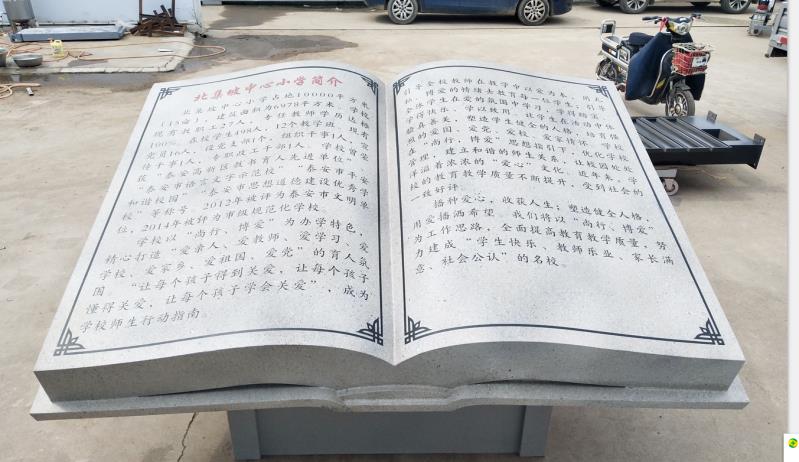 北集坡中心小学简介
北集坡中心小学占地10000平方米
(15亩)，建筑面积为6978平方米，学校
现有教职工27人，专任教师学历达标
100%，在校学生498人，12个教学班，现有
党员16人，设党支部1个，组织干事1人，宣
传干事1人，专职政工干部1人。学校曾荣
获“泰安高新区教书育人先进单位”、
“泰安市语言文字示范校”、“泰安市平安
和谐校园”、“泰安市思想道德建设优秀学
校”等称号，2012年被评为泰安市文明单
位，2014年被评为市级规范化学校。
学校以“尚行、博爱”为办学特色，
精心打造“爱亲人、爱教师、爱学习、爱
学校、爱家乡、爱祖国、爱党”的育人氛
围，“让每个孩子得到关爱，让每个孩子
懂得关爱，让每个孩子学会关爱”，成为
学校师生行动指南。
引导全校教师在教学中以爱为本，用
和博爱的情绪去教育每一位学生；引导
学生在爱的氛围中学习，学科培
学得快乐，学以致用，让学生在活动中体
验真善美，塑造学生健全的人格，培育强
烈的爱国、爱党、爱校、爱家情怀。学校
在“尚行、博爱”思想指引下，优化学校
管理，建立和谐的师生关系，让校园处处
洋溢着浓浓的“爱心”文化。近年来，学
校的教育教学质量不断提升，受到社会的
一致好评。
播种爱心，收获人生；塑造健全人格，
用爱播洒希望。我们将以“尚行、博爱”
为工作思路，全面提高教育教学质量，努
力建成“学生快乐、教师乐业、家长满
意、社会公认”的名校。